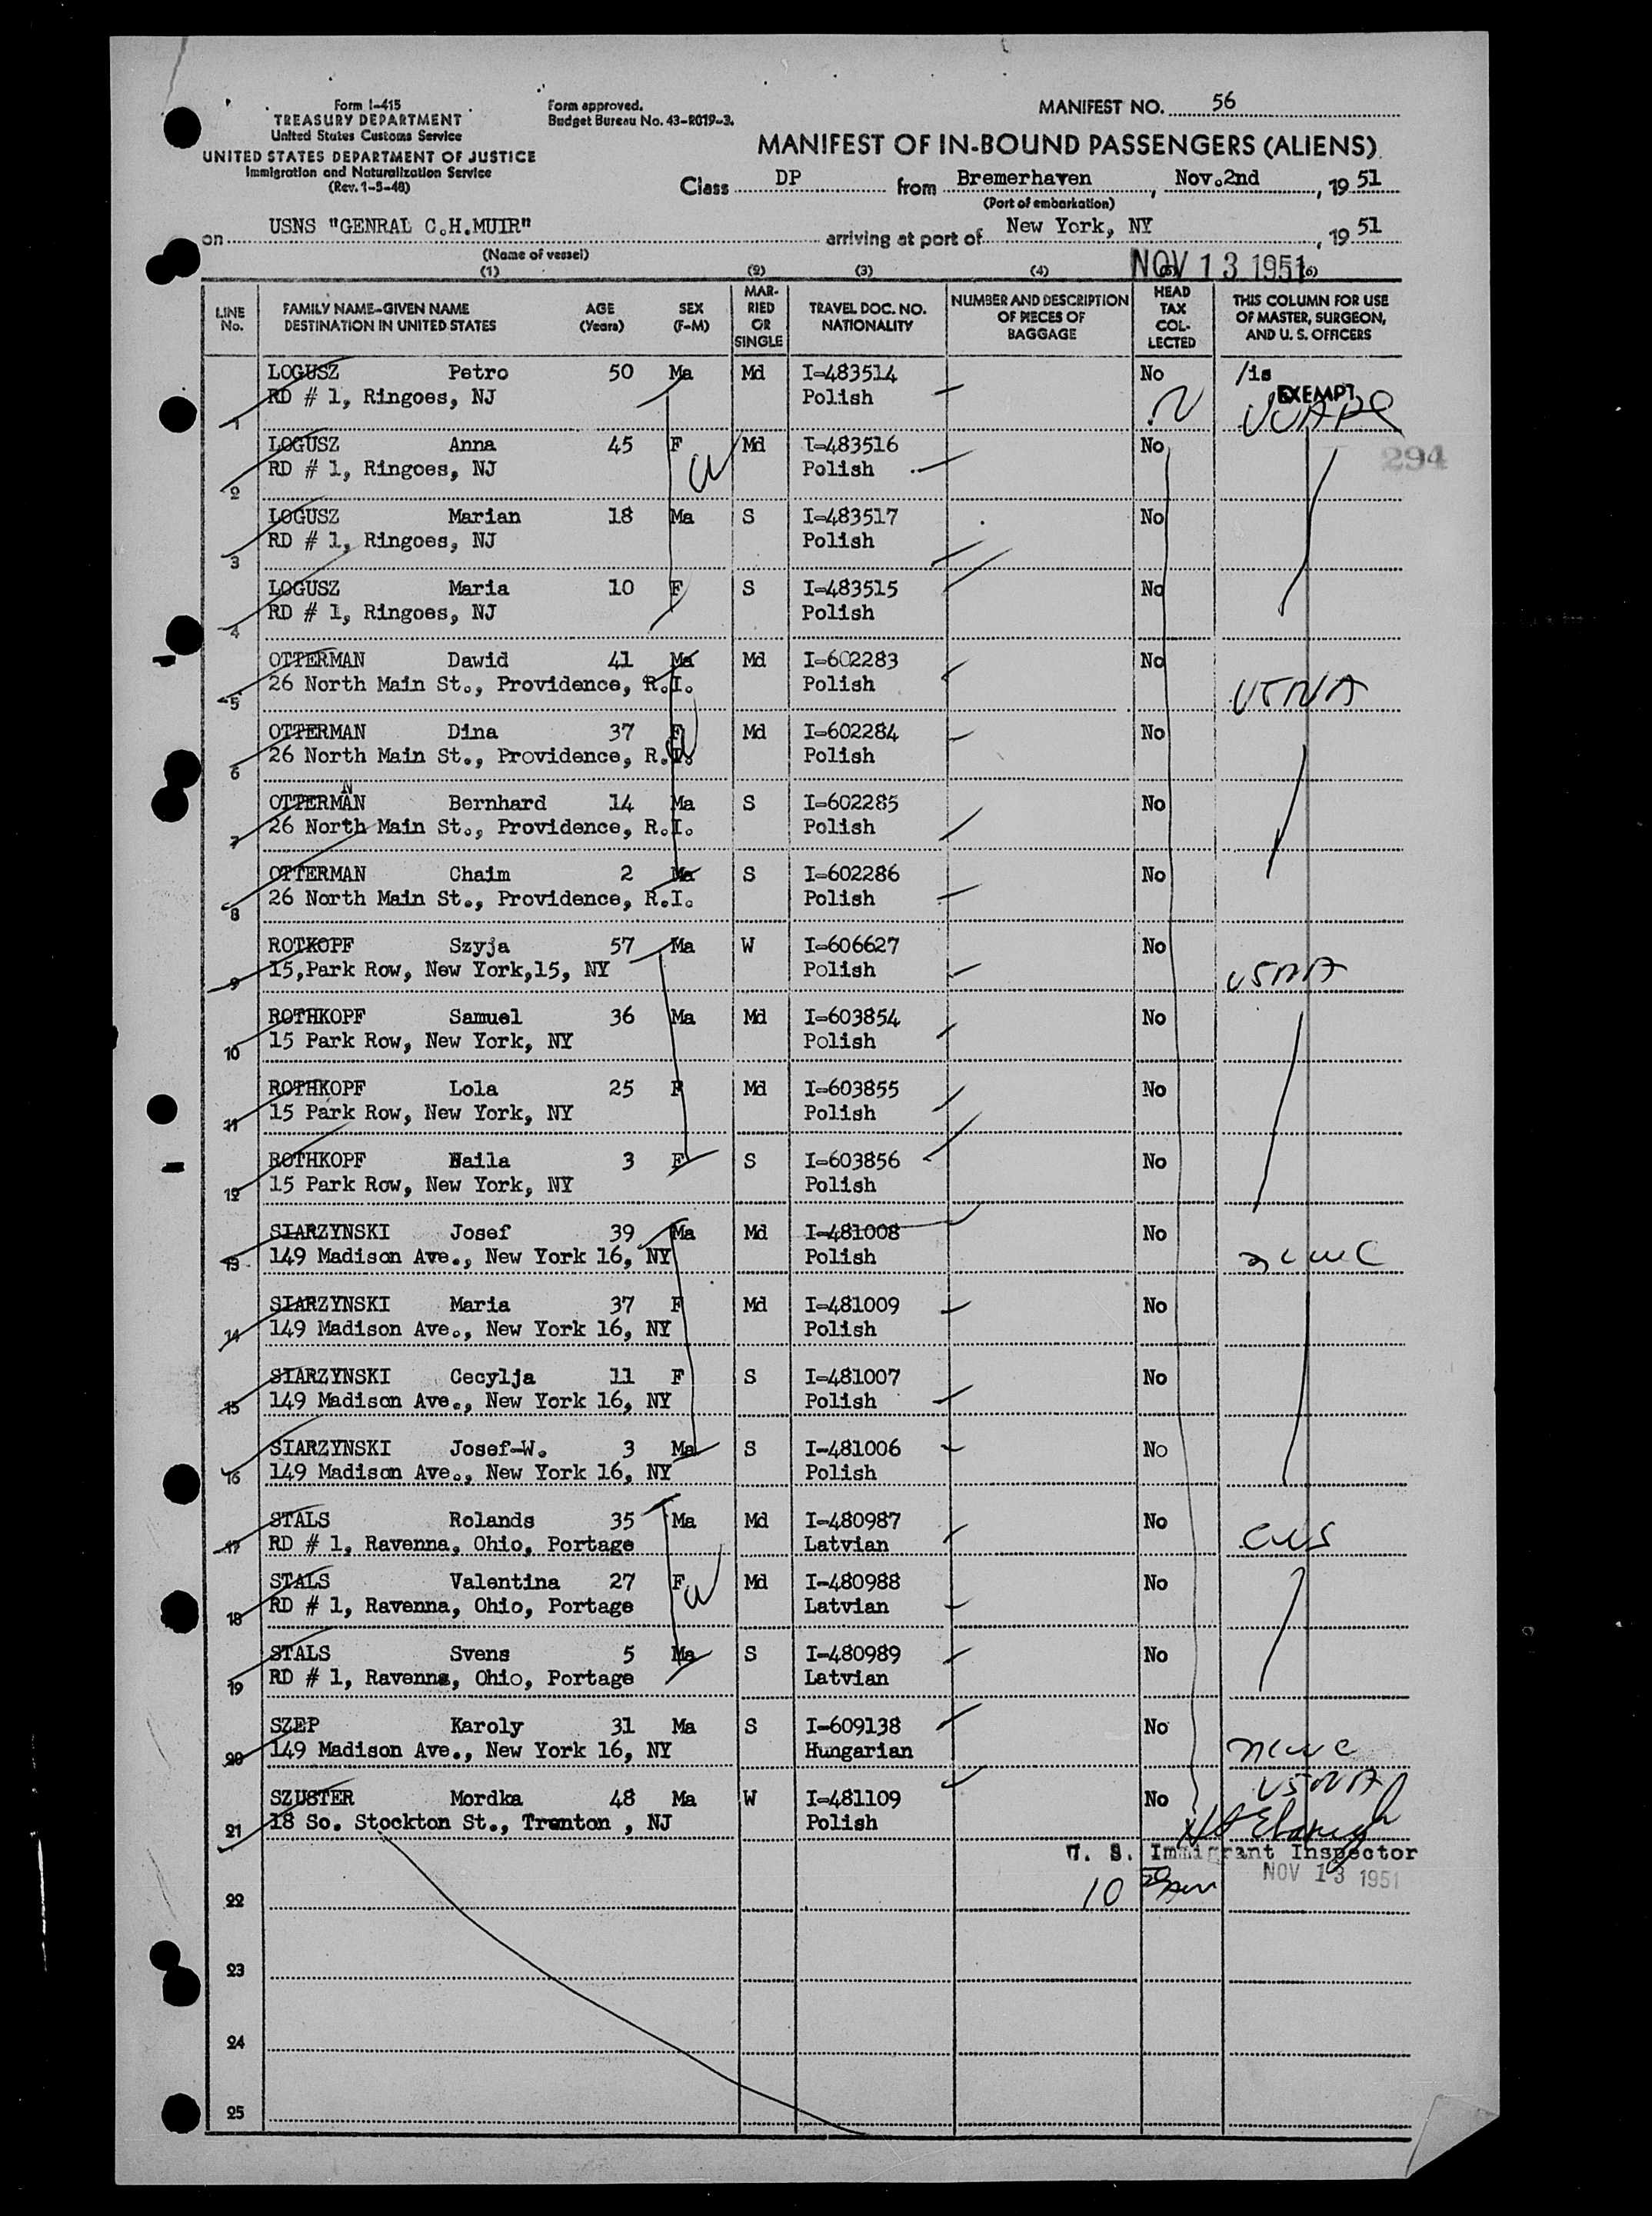 Form I-415
TREASURY DEPARTMENT
United States Customs Service
UNITED STATES DEPARTMENT OF JUSTICE
Immigration and Naturalization Service
(Rev. 1-5-48)
Form approved.
Budget Bureau No. 43-R019-3.
MANIFEST NO. 56
MANIFEST OF IN-BOUND PASSENGERS (ALIENS)
Class DP from Bremerhaven, Nov.2nd, 1951
(Port of embarkation)
on USNS "GENRAL C.H.MUIR" arriving at port of New York, NY, 1951
(Name of vessel)
NOV 13 1951
(1) (2) (3) (4) (5) (6)
LINE No. FAMILY NAME-GIVEN NAME DESTINATION IN UNITED STATES AGE (Years) SEX (F-M) MARRIED OR SINGLE TRAVEL DOC. NO. NATIONALITY NUMBER AND DESCRIPTION OF PIECES OF BAGGAGE HEAD TAX COLLECTED THIS COLUMN FOR USE OF MASTER, SURGEON, AND U. S. OFFICERS
LOGUSZ Petro 50 Ma Md I-483514 No /is
1 RD # 1, Ringoes, NJ Polish EXEMPT
LOGUSZ Anna 45 F Md I-483516 No
2 RD # 1, Ringoes, NJ Polish 294
LOGUSZ Marian 18 Ma S I-483517 No
3 RD # 1, Ringoes, NJ Polish
LOGUSZ Maria 10 F S I-483515 No
4 RD # 1, Ringoes, NJ Polish
OTTERMAN Dawid 41 Ma Md I-602283 No
5 26 North Main St., Providence, R.I. Polish USNA
OTTERMAN Dina 37 F Md I-602284 No
6 26 North Main St., Providence, R.I. Polish
N
OTTERMAN Bernhard 14 Ma S I-602285 No
7 26 North Main St., Providence, R.I. Polish
OTTERMAN Chaim 2 Ma S I-602286 No
8 26 North Main St., Providence, R.I. Polish
ROTKOPF Szyja 57 Ma W I-606627 No
9 15,Park Row, New York,15, NY Polish USNA
ROTHKOPF Samuel 36 Ma Md I-603854 No
10 15 Park Row, New York, NY Polish
ROTHKOPF Lola 25 F Md I-603855 No
11 15 Park Row, New York, NY Polish
ROTHKOPF Naila 3 F S I-603856 No
12 15 Park Row, New York, NY Polish
SIARZYNSKI Josef 39 Ma Md I-481008 No
13 149 Madison Ave., New York 16, NY Polish NCWC
SIARZYNSKI Maria 37 F Md I-481009 No
14 149 Madison Ave., New York 16, NY Polish
SIARZYNSKI Cecylja 11 F S I-481007 No
15 149 Madison Ave., New York 16, NY Polish
SIARZYNSKI Josef-W. 3 Ma S I-481006 No
16 149 Madison Ave., New York 16, NY Polish
STALS Rolands 35 Ma Md I-480987 No
17 RD # 1, Ravenna, Ohio, Portage Latvian CWS
STALS Valentina 27 F Md I-480988 No
18 RD # 1, Ravenna, Ohio, Portage Latvian
STALS Svens 5 Ma S I-480989 No
19 RD # 1, Ravenna, Ohio, Portage Latvian
SZEP Karoly 31 Ma S I-609138 No
20 149 Madison Ave., New York 16, NY Hungarian NCWC
SZUSTER Mordka 48 Ma W I-481109 No USNA
21 18 So. Stockton St., Trenton , NJ Polish
U. S. Immigrant Inspector
NOV 13 1951
22
23
24
25